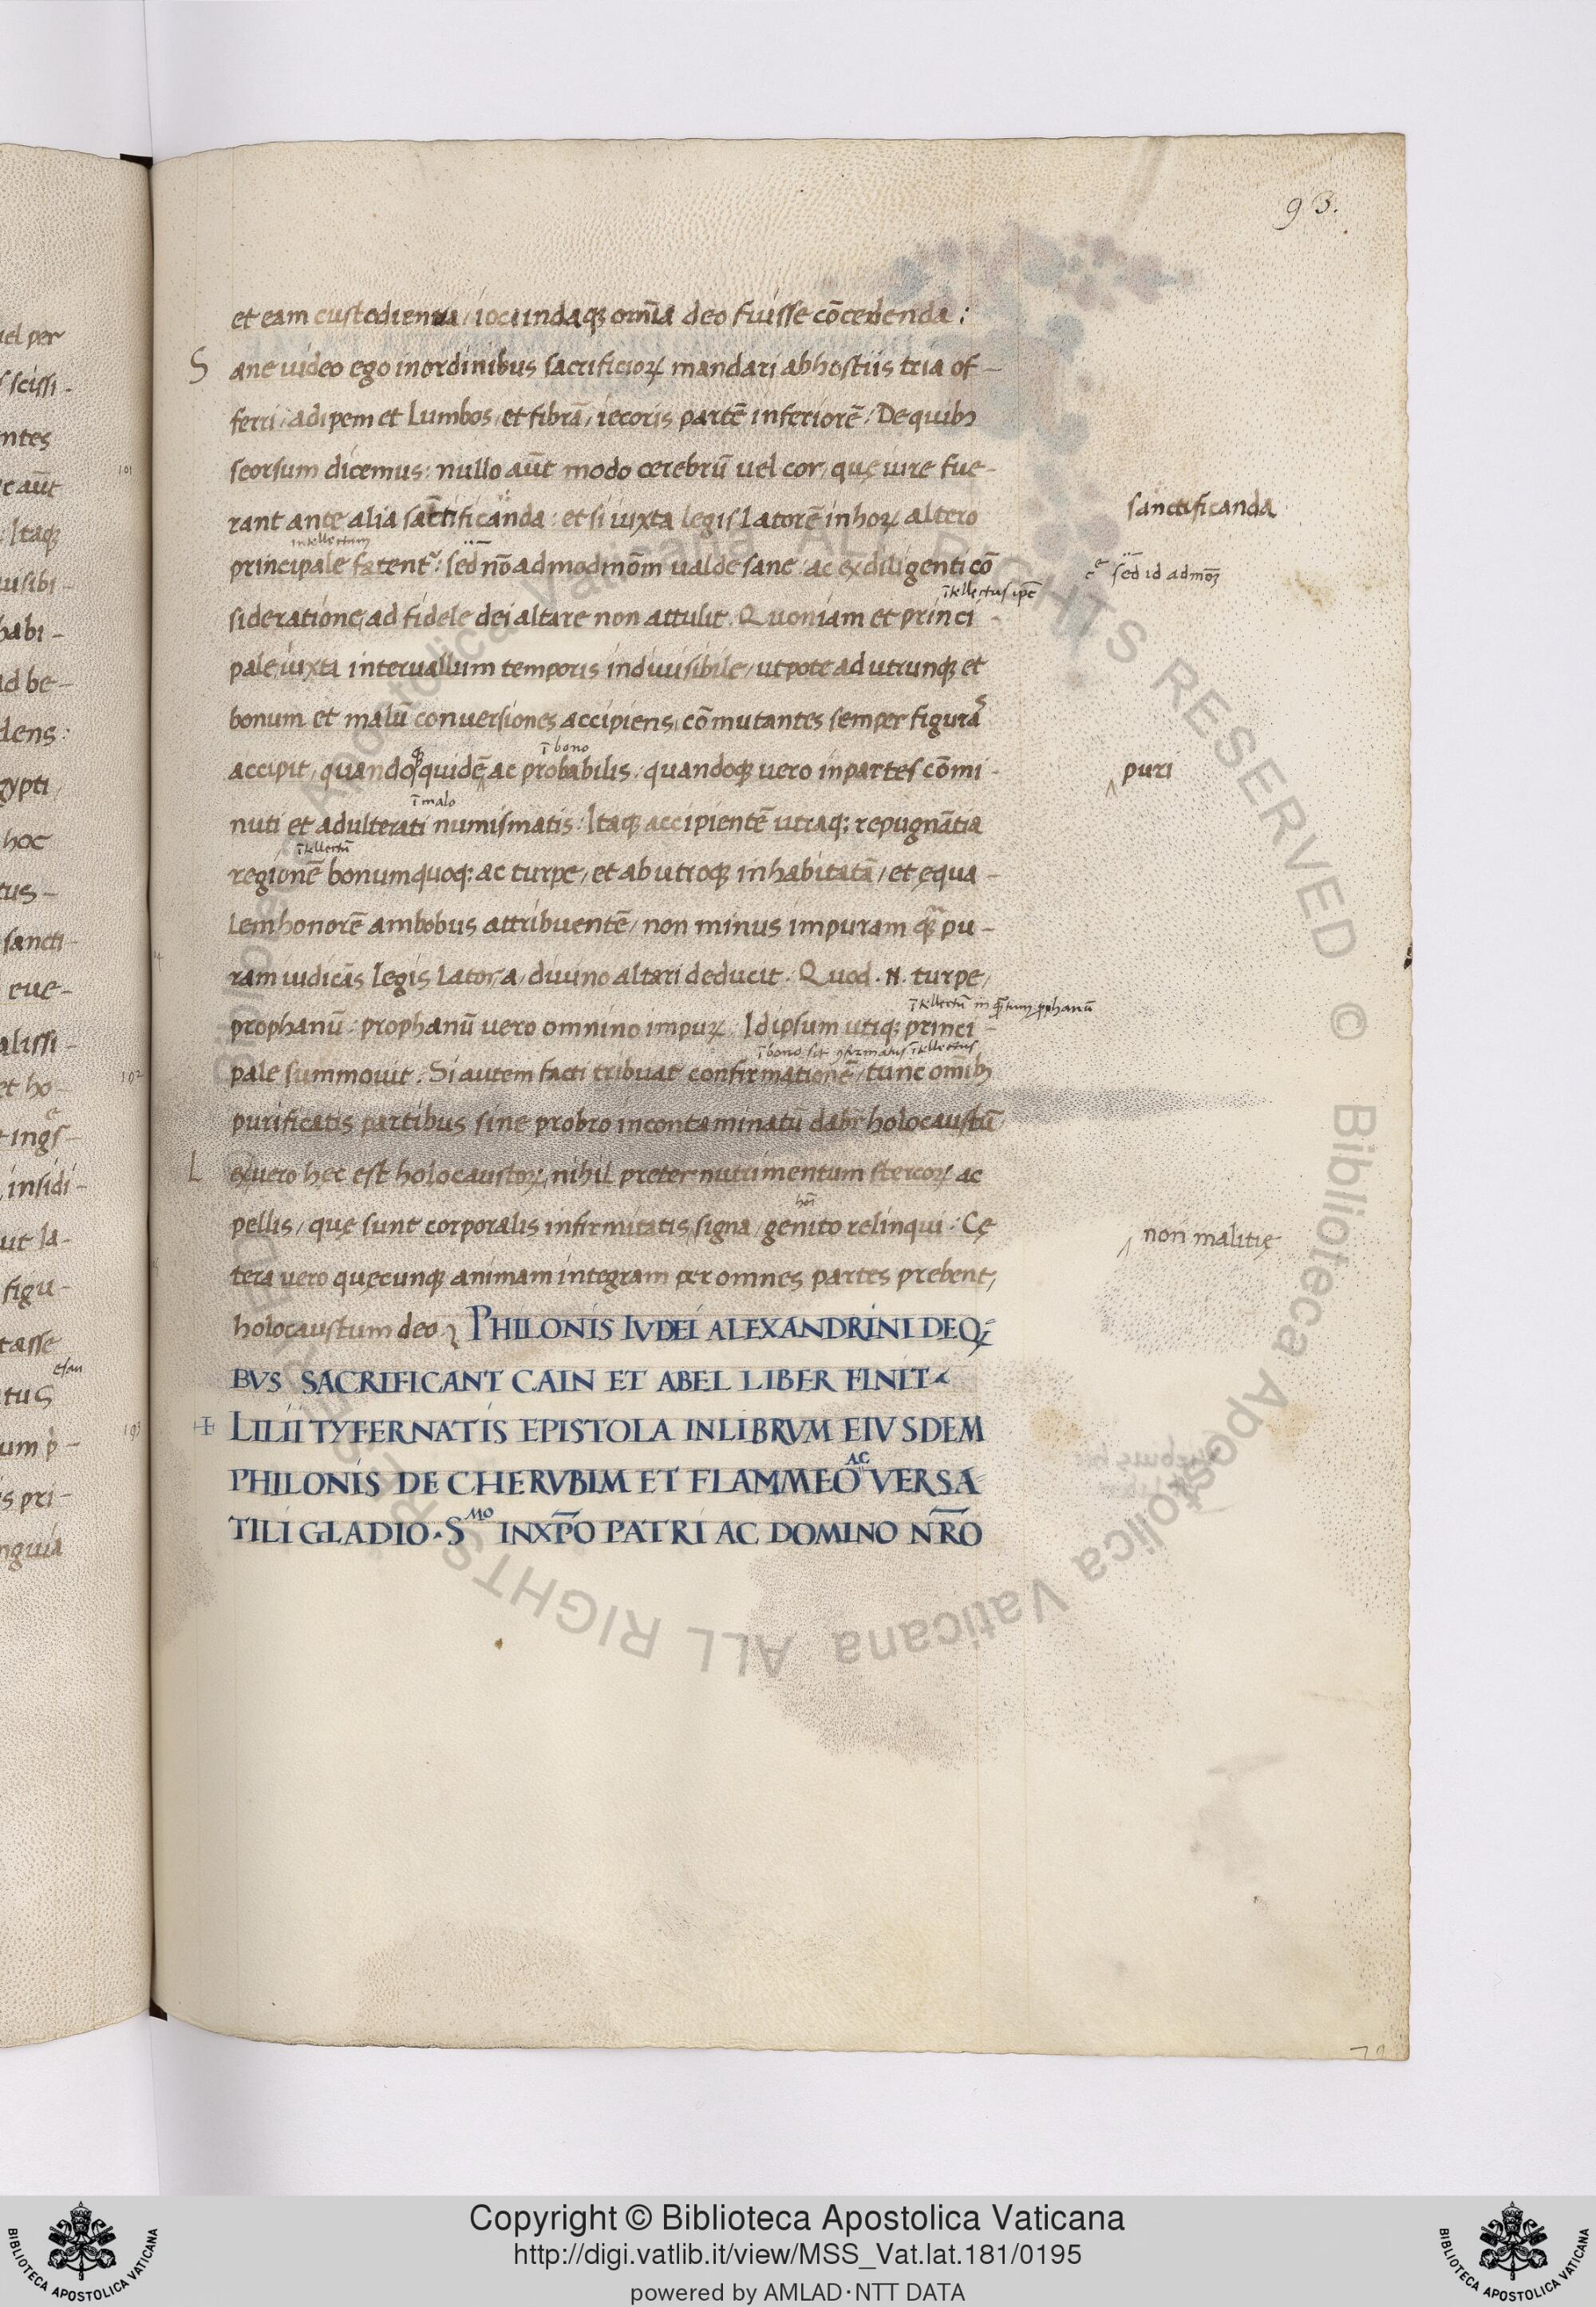 93.
et eam custodienda, iocundaq; om̄ia deo fuisse cōcedenda:
Sane uideo ego in ordinibus sacrificioꝝ mandari ab hostiis tria of-
ferri, adipem et Lumbos, et fibrā, iecoris partē inferiorē: De quibꝫ
seorsum dicemus: nullo aūt modo cerebrū uel cor, quę iure fue-
rant ante alia sāctificanda: et si iuxta legis Latorē in hoꝝ altero
sanctificanda
intellectum
principale fatentʳ: sed nō admodmōm ualde sane: ac ex diligenti cō
sed id admoꝫ
ītellectus ipē
sideratione ad fidele dei altare non attulit. Quoniam et princi-
pale, iuxta interuallum temporis indiuisibile, utpote ad utrunq; et
bonum et malū conuersiones accipiens, cōmutantes semper figuras
ī bono
accipit, quandoq; quidē ac probabilis, quandoq; uero in partes cōmi-
puri
ī malo
nuti et adulterati numismatis: Itaq; accipientē utraq; repugnātia
ītellectū
regionē bonum quoq; ac turpe, et ab utroq; inhabitatā, et ęqua-
Lem honorē ambobus attribuentē, non minus impuram quā pu-
ram iudicās legis Lator, a, diuino altari deducit. Quod .N. turpe,
ītellectū in quātum pphanū
prophanū: prophanū uero omnino impuꝝ: Id ipsum utiq; princi-
ī bono sit ꝯfirmatus ītellectus
pale summouit: Si autem facti tribuat confirmationē, tunc om̄ibꝫ
purificatis partibus sine probro incontaminatū dabit holocaustū
Lex uero hęc est holocaustoꝝ, nihil preter nutrimentum stercoꝝ ac
hōi
pellis, quę sunt corporalis infirmitatis, signa, genito relinqui: Cę
non malitię
tera uero quęcunq; animam integram per omnes partes prebent,
holocaustum deo. PHILONIS IVDEI ALEXANDRINI DE Q;
BVS SACRIFICANT CAIN ET ABEL LIBER FINIT
LILII TYFERNATIS EPISTOLA IN LIBRVM EIVSDEM
AC
PHILONIS DE CHERVBIM ET FLAMMEO VERSA
TILI GLADIO. Sᴹᴼ IN XP̄O PATRI AC DOMINO NR̄O
Copyright © Biblioteca Apostolica Vaticana
http://digi.vatlib.it/view/MSS_Vat.lat.181/0195
powered by AMLAD·NTT DATA
BIBLIOTECA APOSTOLICA VATICANA
BIBLIOTECA APOSTOLICA VATICANA
© Biblioteca Apostolica Vaticana ALL RIGHTS RESERVED